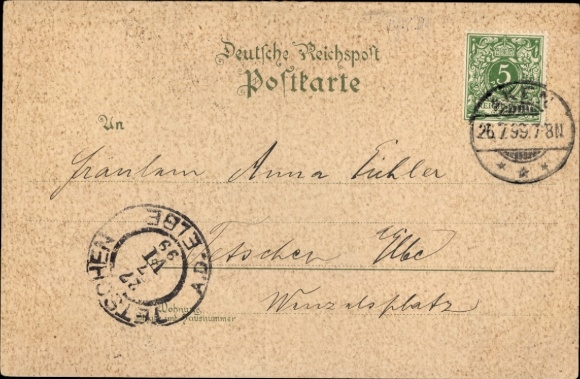 Deutsche Reichspost
Postkarte
5
26.7.99.7-8N.
An
Fräulein Anna Eichler
Tetschen a/Elbe
Wenzelsplatz
TETSCHEN A.D. ELBE
27
VII
99
Wohnung